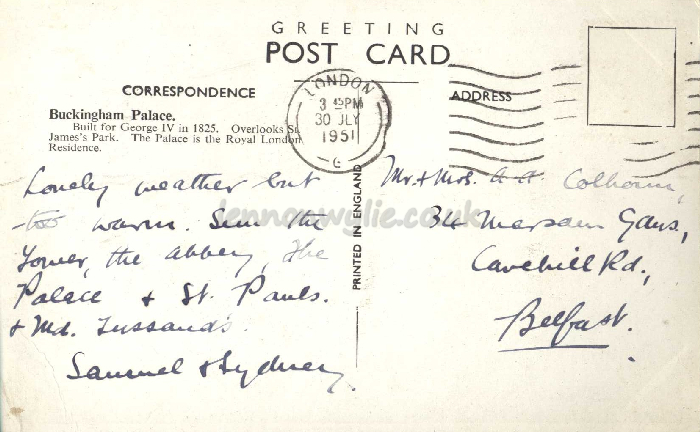 GREETING
POST CARD
CORRESPONDENCE
ADDRESS
LONDON
3 45PM
30 JLY
1951
G
Buckingham Palace.
Built for George IV in 1825. Overlooks St.
James's Park. The Palace is the Royal London
Residence.
Lovely weather but
too warm. Seen the
Tower, the abbey, the
Palace & St. Pauls.
& Md. Tussauds.
Samuel & Sydney.
PRINTED IN ENGLAND
Mr. & Mrs. A. A. Colhoun,
34 Gdns.,
Cavehill Rd.,
Belfast.
lennonwylie.co.uk